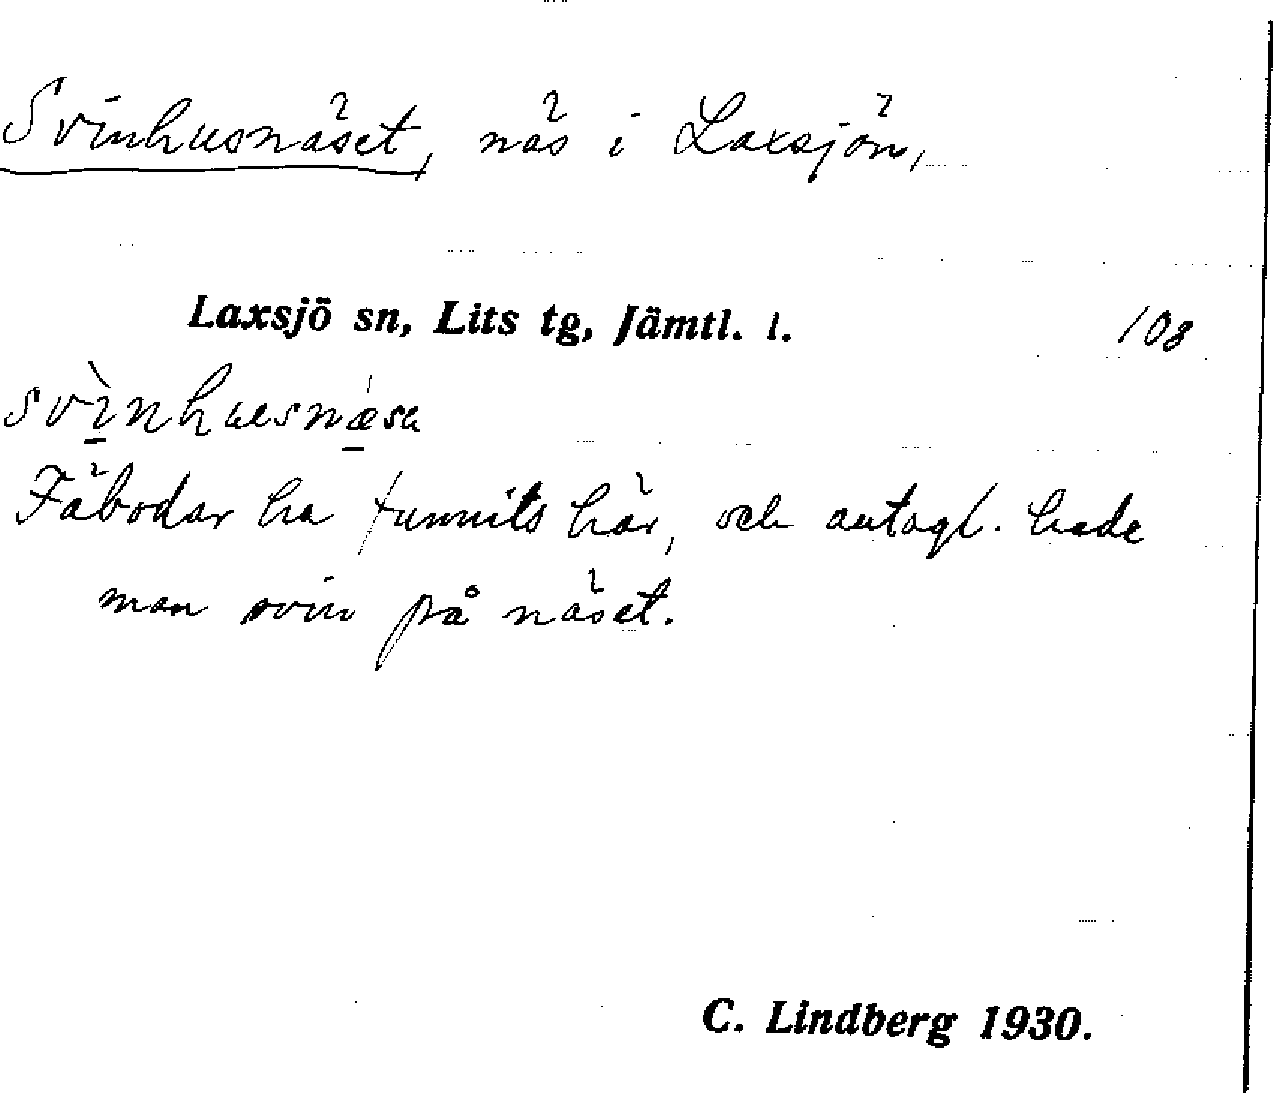 Svinhusnäset, näs i Laxsjön,
Laxsjö sn, Lits tg, Jämtl. l. 108
svìnhusnæ̀sa
Fäbodar ha funnits här, och antagl. hade
man svin på näset.
C. Lindberg 1930.